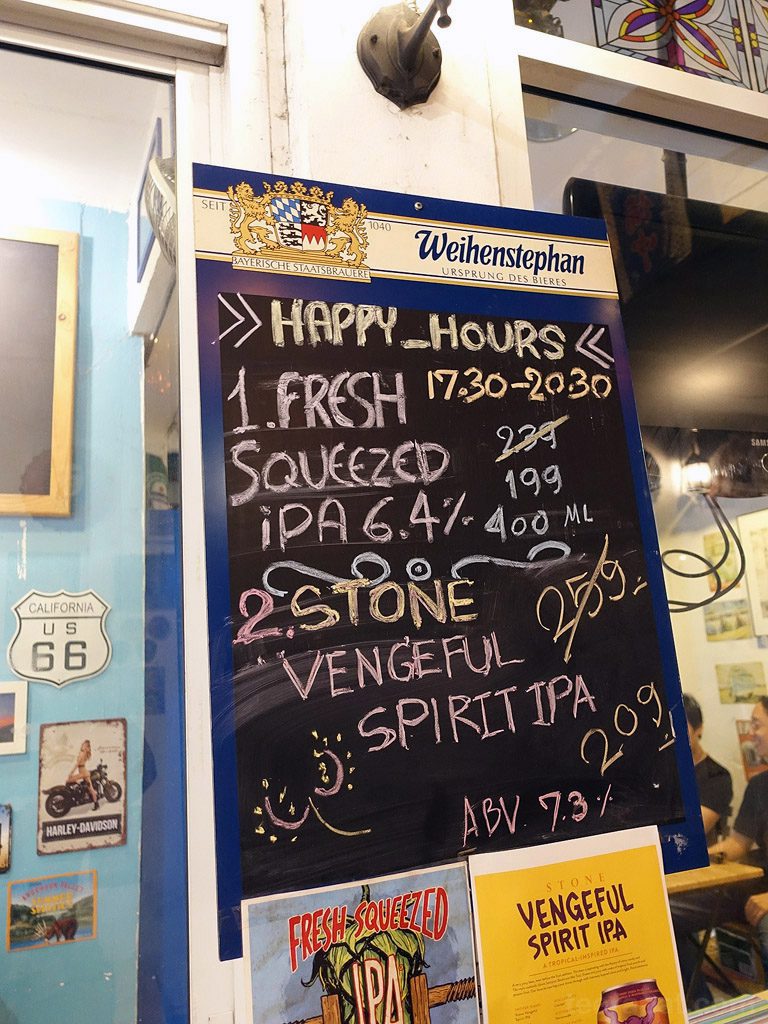 SEIT
1040
BAYERISCHE STAATSBRAUEREI
Weihenstephan
URSPRUNG DES BIERES
>> HAPPY_HOURS <<
1. FRESH 17.30-20.30
SQUEEZED 239
199
iPA 6.4% 400 ML
2. STONE 259.-
VENGEFUL
SPIRIT IPA
209.-
ABV. 7.3%
CALIFORNIA
US
66
HARLEY-DAVIDSON
SAMS
FRESH-SQUEEZED
IPA
STONE
VENGEFUL
SPIRIT IPA
A TROPICAL-INSPIRED IPA